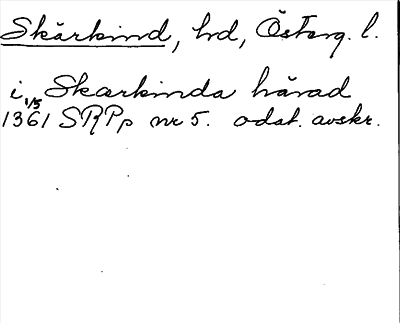 Skärkind, hd, Österg. l.
i Skærkinda härad
1/5 1361 SRPp nr 5. odat. avskr.